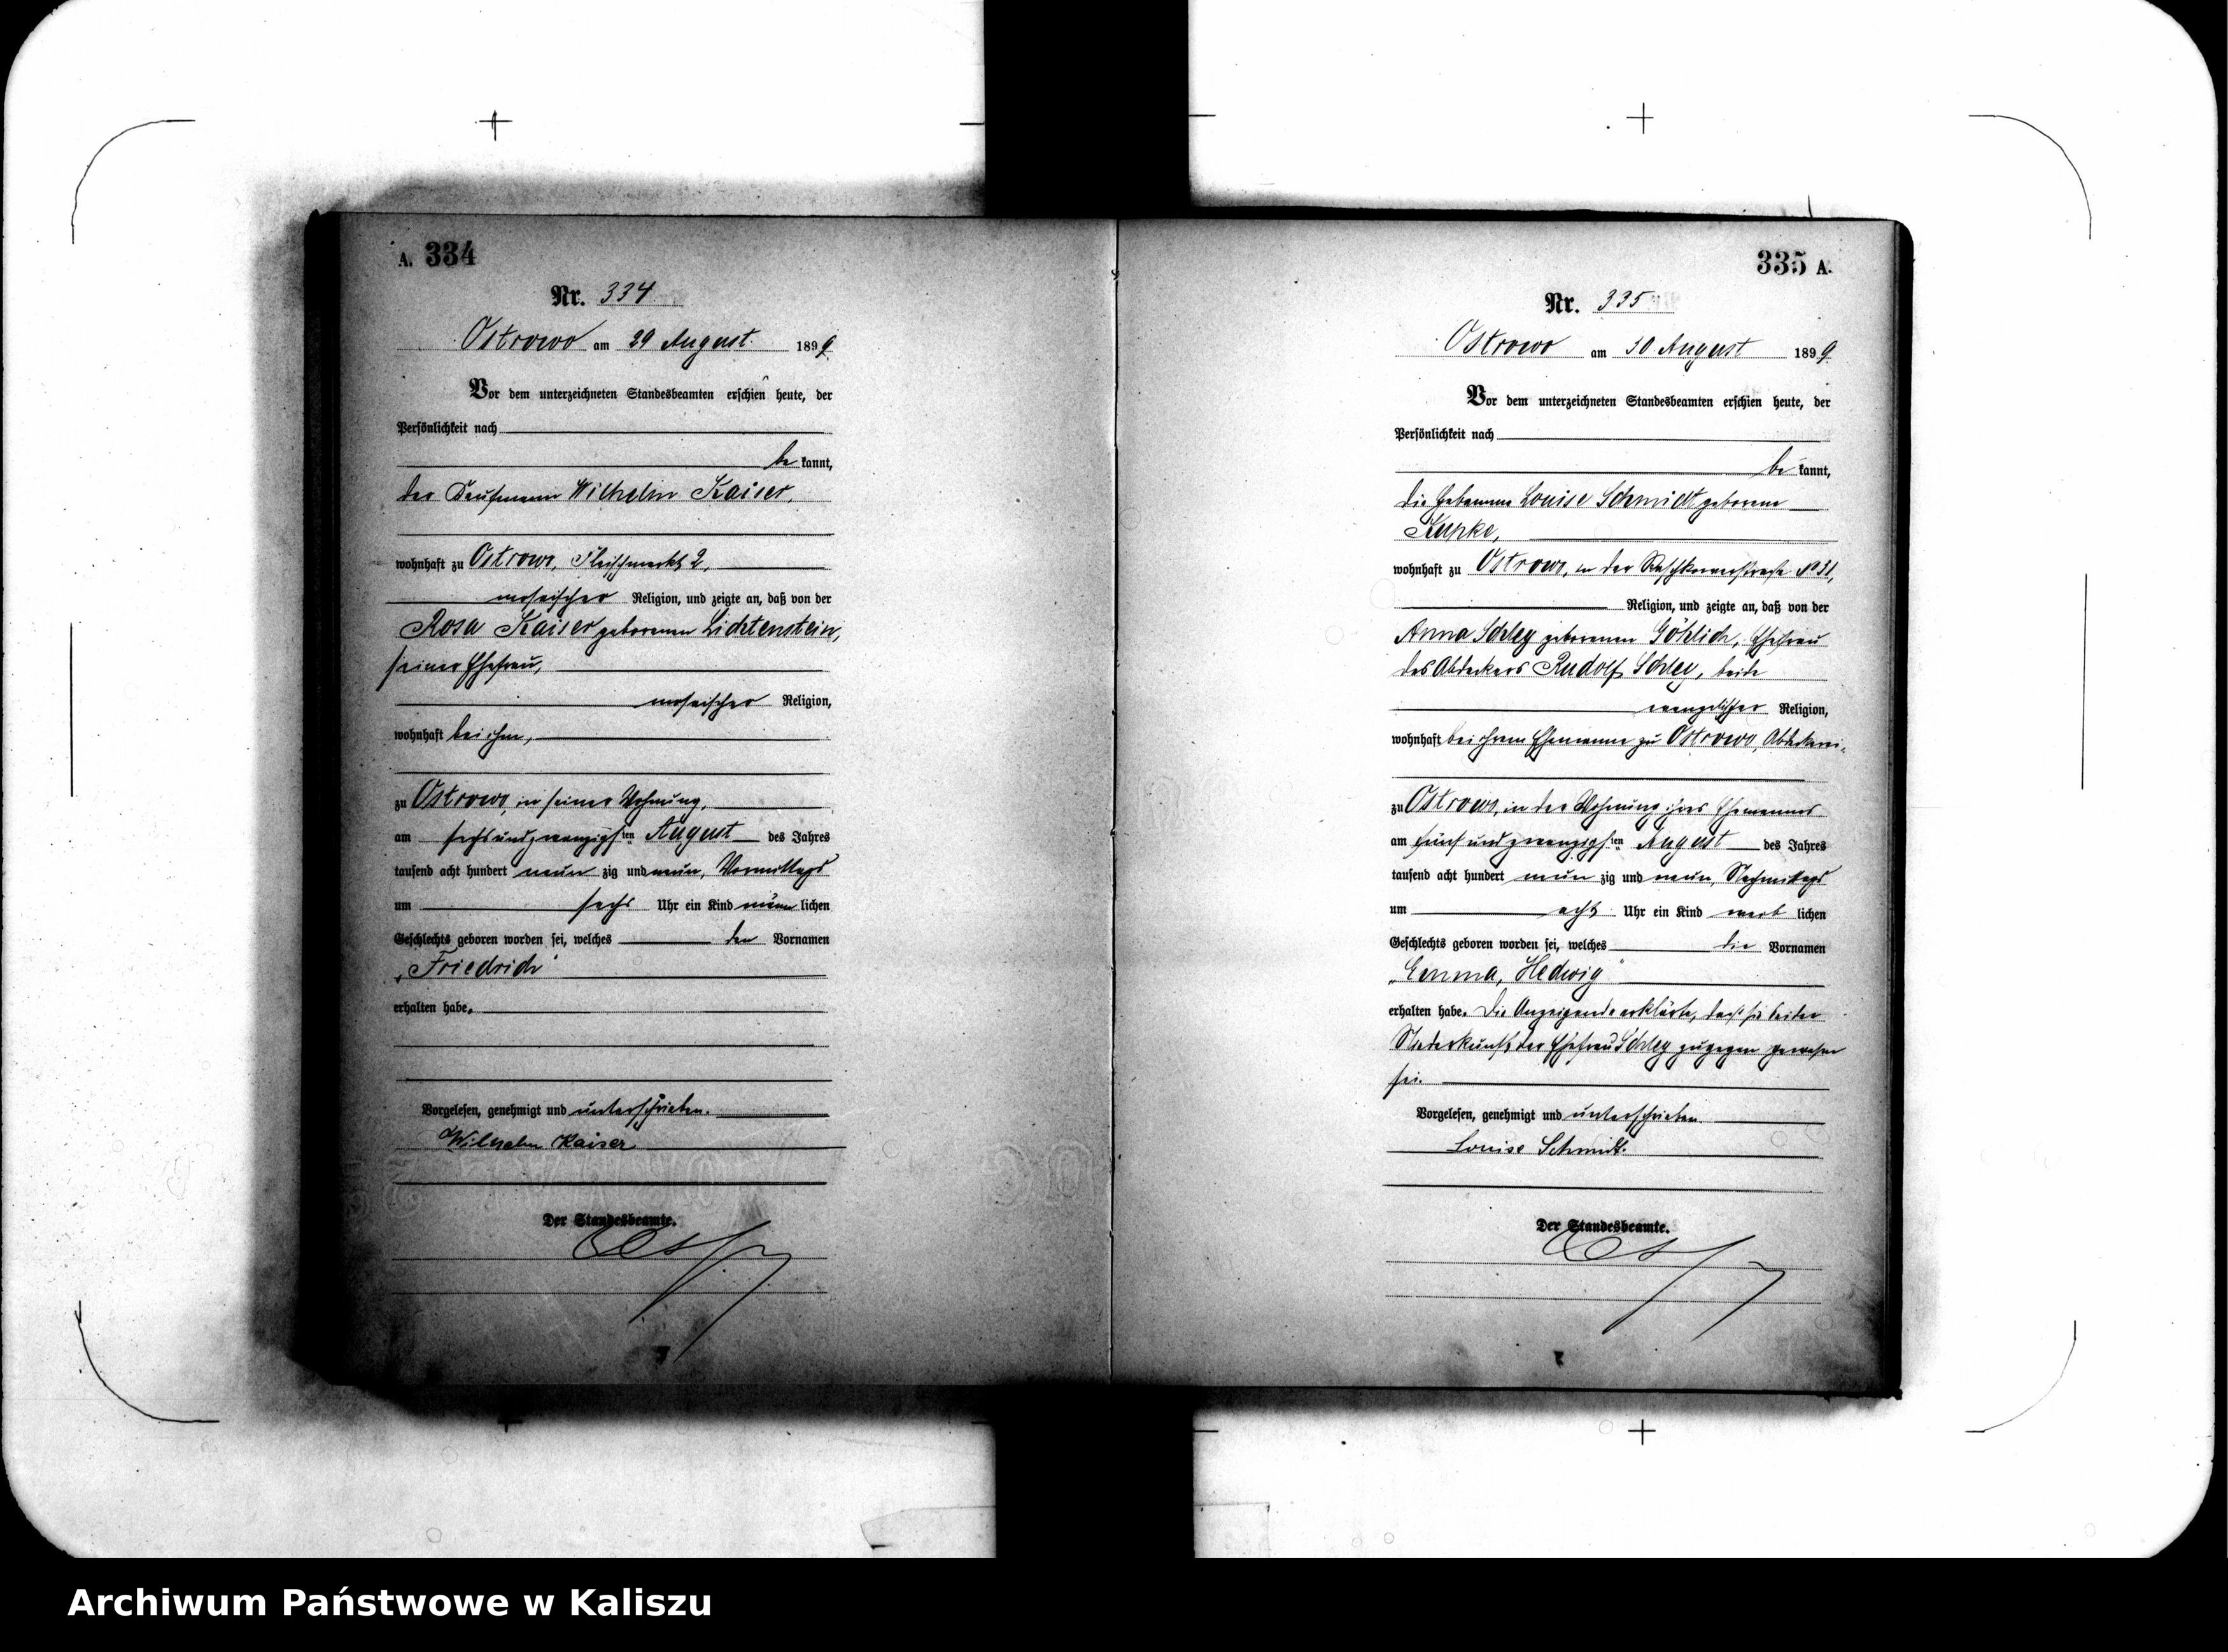 A. 334
Nr. 334
Ostrowo am 29 August 1899
Vor dem unterzeichneten Standesbeamten erschien heute, der
Persönlichkeit nach
be kannt,
der Kaufmann Wilhelm Kaiser,
wohnhaft zu Ostrowo, Fleischmarkt 2,
mosaischer Religion, und zeigte an, daß von der
Rosa Kaiser geborenen Lichtenstein,
seiner Ehefrau,
mosaischer Religion,
wohnhaft bei ihm,
zu Ostrowo, in seiner Wohnung,
am sechsundzwanzigsten August des Jahres
tausend acht hundert neun zig und neun, Vormittags
um sechs Uhr ein Kind männ lichen
Geschlechts geboren worden sei, welches den Vornamen
„Friedrich"
erhalten habe.
Vorgelesen, genehmigt und unterschrieben.
Wilhelm Kaiser
Der Standesbeamte.
335 A.
Nr. 335
Ostrowo am 30 August 1899
Vor dem unterzeichneten Standesbeamten erschien heute, der
Persönlichkeit nach
be kannt,
die Hebamme Louise Schmidt geborene
Kupke,
wohnhaft zu Ostrowo, in der Raschkowerstraße No 31,
Religion, und zeigte an, daß von der
Anna Schley geborenen Göhlich, Ehefrau
des Abdeckers Rudolf Schley, beide
evangelischer Religion,
wohnhaft bei ihrem Ehemanne zu Ostrowo, Abdeckerei,
zu Ostrowo, in der Wohnung ihres Ehemannes
am fünfundzwanzigsten August des Jahres
tausend acht hundert neun zig und neun, Nachmittags
um acht Uhr ein Kind weib lichen
Geschlechts geboren worden sei, welches die Vornamen
„Emma, Hedwig"
erhalten habe. Die Anzeigende erklärte, daß sie bei der
Niederkunft der Ehefrau Schley zugegen gewesen
sei.
Vorgelesen, genehmigt und unterschrieben.
Louise Schmidt.
Der Standesbeamte.
Archiwum Państwowe w Kaliszu